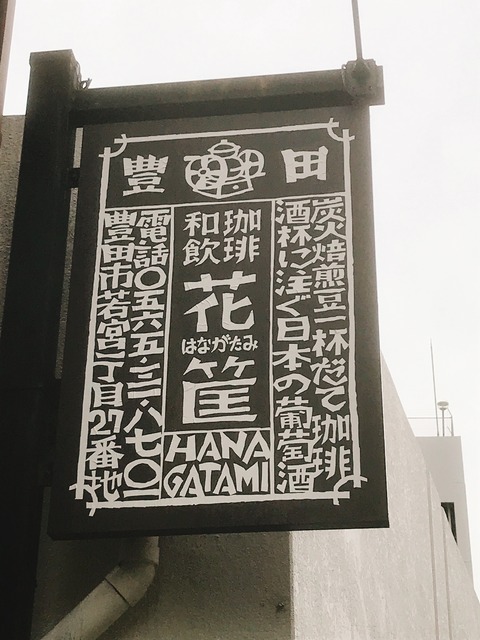 豊田
炭火焙煎豆一杯だて珈琲
酒杯に注ぐ日本の葡萄酒
珈琲
和飲
花筐
はながたみ
HANA
GATAMI
電・話〇五六五・三二・八七〇二
豊田市若宮一丁目27番地